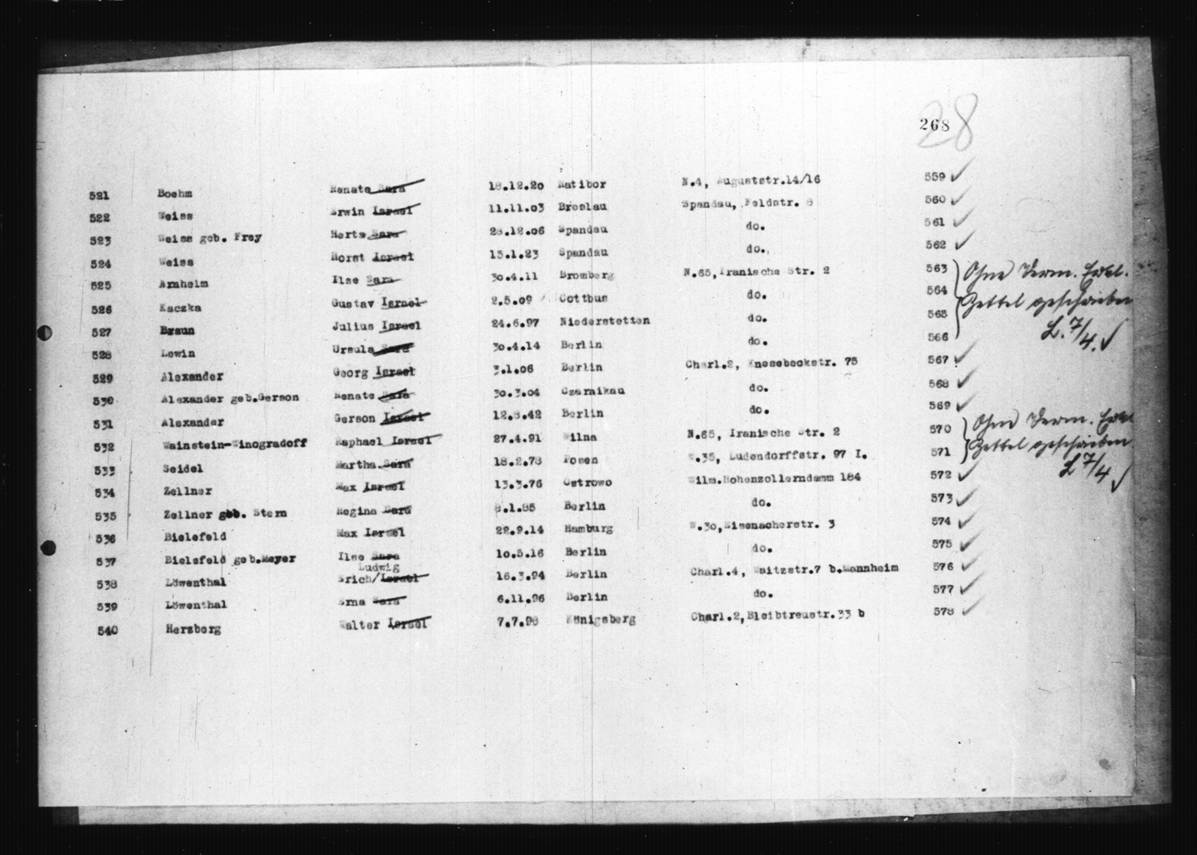 268
28
521 Boehm Renate Sara 18.12.20 Ratibor N.4, Auguststr.14/16 559
522 Weiss Erwin Israel 11.11.03 Breslau Spandau, Feldstr. 560
523 Weiss geb. Frey Herta Sara 28.12.06 Spandau do. 561
524 Weiss Horst Israel 15.1.23 Spandau do. 562
525 Arnheim Ilse Sara 30.4.11 Bromberg N.65, Iranische Str. 2 563
526 Kaczka Gustav Israel 2.5.09 Cottbus do. 564
527 Braun Julius Israel 24.6.97 Niederstetten do. 565
528 Lewin Ursula Sara 30.4.14 Berlin do. 566
Ohne Verm. Erkl.
Zettel geschrieben
L. 7/4.
529 Alexander Georg Israel 3.1.06 Berlin Charl.2, Knesebeckstr. 75 567
530 Alexander geb.Gerson Renate Sara 30.3.04 Czarnikau do. 568
531 Alexander Gerson Israel 12.8.42 Berlin do. 569
532 Wainstein-Winogradoff Raphael Israel 27.4.91 Wilna N.65, Iranische Str. 2 570
533 Seidel Martha Sara 18.2.78 Posen W.35, Ludendorffstr. 97 I. 571
Ohne Verm. Erkl.
Zettel geschrieben
L 7/4
534 Zellner Max Israel 13.3.76 Ostrowo Wilm.Hohenzollerndamm 184 572
535 Zellner geb. Stern Regina Sara 8.1.85 Berlin do. 573
536 Bielefeld Max Israel 22.9.14 Hamburg W.30, Eisenacherstr. 3 574
537 Bielefeld geb.Meyer Ilse Sara 10.5.16 Berlin do. 575
Ludwig
538 Löwenthal Erich/Israel 16.3.94 Berlin Charl.4, Waitzstr.7 b.Mannheim 576
539 Löwenthal Erna Sara 6.11.96 Berlin do. 577
540 Herzberg Walter Israel 7.7.98 Königsberg Charl.2, Bleibtreustr.33 b 578